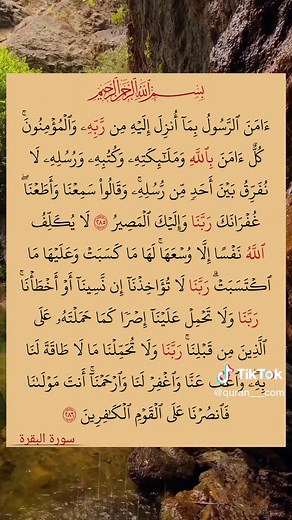 بِسْمِ ٱللَّهِ ٱلرَّحْمَٰنِ ٱلرَّحِيمِ
ءَامَنَ ٱلرَّسُولُ بِمَآ أُنزِلَ إِلَيْهِ مِن رَّبِّهِۦ وَٱلْمُؤْمِنُونَۚ
كُلٌّ ءَامَنَ بِٱللَّهِ وَمَلَـٰٓئِكَتِهِۦ وَكُتُبِهِۦ وَرُسُلِهِۦ لَا
نُفَرِّقُ بَيْنَ أَحَدٍ مِّن رُّسُلِهِۦۚ وَقَالُوا۟ سَمِعْنَا وَأَطَعْنَاۖ
غُفْرَانَكَ رَبَّنَا وَإِلَيْكَ ٱلْمَصِيرُ ٢٨٥ لَا يُكَلِّفُ
ٱللَّهُ نَفْسًا إِلَّا وُسْعَهَاۚ لَهَا مَا كَسَبَتْ وَعَلَيْهَا مَا
ٱكْتَسَبَتْۗ رَبَّنَا لَا تُؤَاخِذْنَآ إِن نَّسِينَآ أَوْ أَخْطَأْنَاۚ
رَبَّنَا وَلَا تَحْمِلْ عَلَيْنَآ إِصْرًا كَمَا حَمَلْتَهُۥ عَلَى
ٱلَّذِينَ مِن قَبْلِنَاۚ رَبَّنَا وَلَا تُحَمِّلْنَا مَا لَا طَاقَةَ لَنَا
بِهِۦۖ وَٱعْفُ عَنَّا وَٱغْفِرْ لَنَا وَٱرْحَمْنَآۚ أَنتَ مَوْلَىٰنَا
فَٱنصُرْنَا عَلَى ٱلْقَوْمِ ٱلْكَـٰفِرِينَ ٢٨٦
سورة البقرة
TikTok
@quran__com